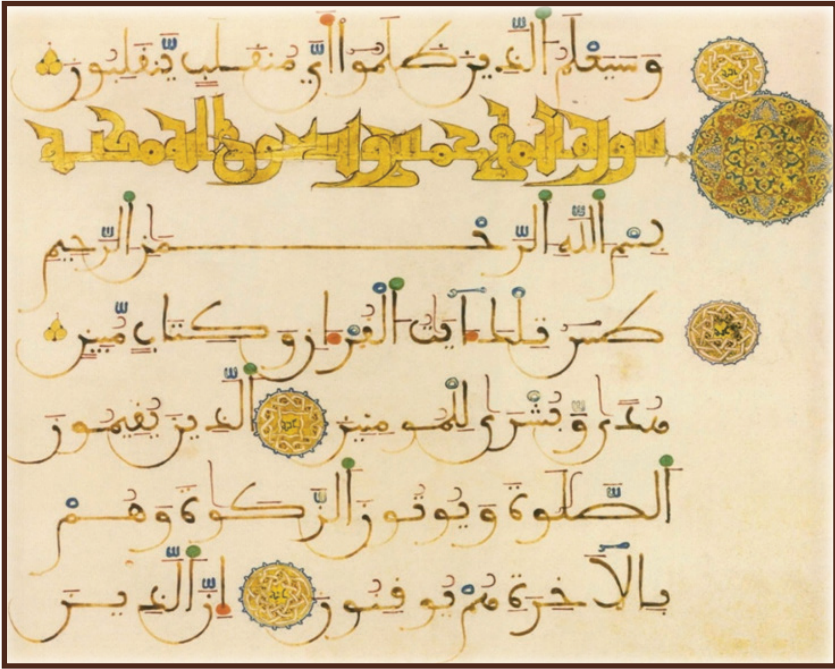 وَسَيَعْلَمُ الَّذِينَ ظَلَمُوا أَيَّ مُنقَلَبٍ يَّنقَلِبُونَ
سورة النمل خمس وتسعون اية مكية
بِسْمِ اللَّهِ الرَّحْمَٰنِ الرَّحِيمِ
طسٓ تِلْكَ ءَايَٰتُ الْقُرْءَانِ وَكِتَابٍ مُّبِينٍ
هُدًى وَّبُشْرَىٰ لِلْمُومِنِينَ الَّذِينَ يُقِيمُونَ
الصَّلَوٰةَ وَيُوتُونَ الزَّكَوٰةَ وَهُمْ
بِالْآخِرَةِ هُمْ يُوقِنُونَ إِنَّ الَّذِينَ